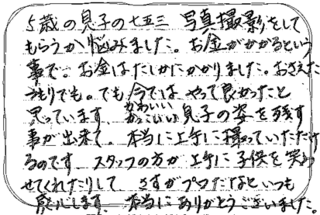 5歳の息子の七五三 写真撮影をして
もらうか悩みました。お金がかかるという
事で。お金はたしかにかかりました。おさえた
つもりでも。でも今では やって良かったと
思っています かわいい かっこいい 息子の姿を残す
事が出来て。本当に上手に撮っていただけ
るのです スタッフの方が 上手に子供を笑わ
せてくれたりして さすがプロだなといつも
感心します。 本当にありがとうございました。